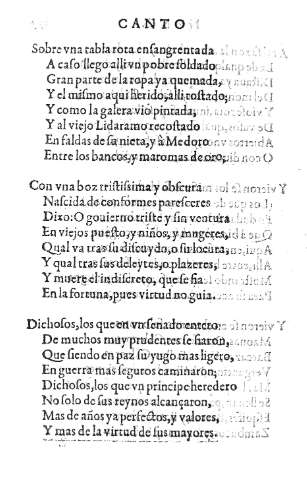 CANTO
Sobre vna tabla rota ensangrentada
A caso llego alli vn pobre soldado
Gran parte de la ropa ya quemada,
Y el mismo aqui herido, alli tostado;
Y como la galera vio pintada,
Y al viejo Lidaramo recostado
En faldas de su nieta, y à Medoro
Entre los bancos, y maromas de oro;
Con vna boz tristissima y obscura
Nascida de conformes paresceres
Dixo: O gouierno triste y sin ventura
En viejos puesto, y niños, y mugeres,
Qual va tras su discuydo, o su locura,
Y qual tras sus deleytes, o plazeres,
Y muere el indiscreto, que se fia
En la fortuna, pues virtud no guia.
Dichosos, los que en vn senado entero
De muchos muy prudentes se fiaron,
Que siendo en paz su yugo mas ligero,
En guerra mas seguros caminaron;
Dichosos, los que vn principe heredero
No solo de sus reynos alcançaron,
Mas de años ya perfectos, y valores,
Y mas de la virtud de sus mayores.